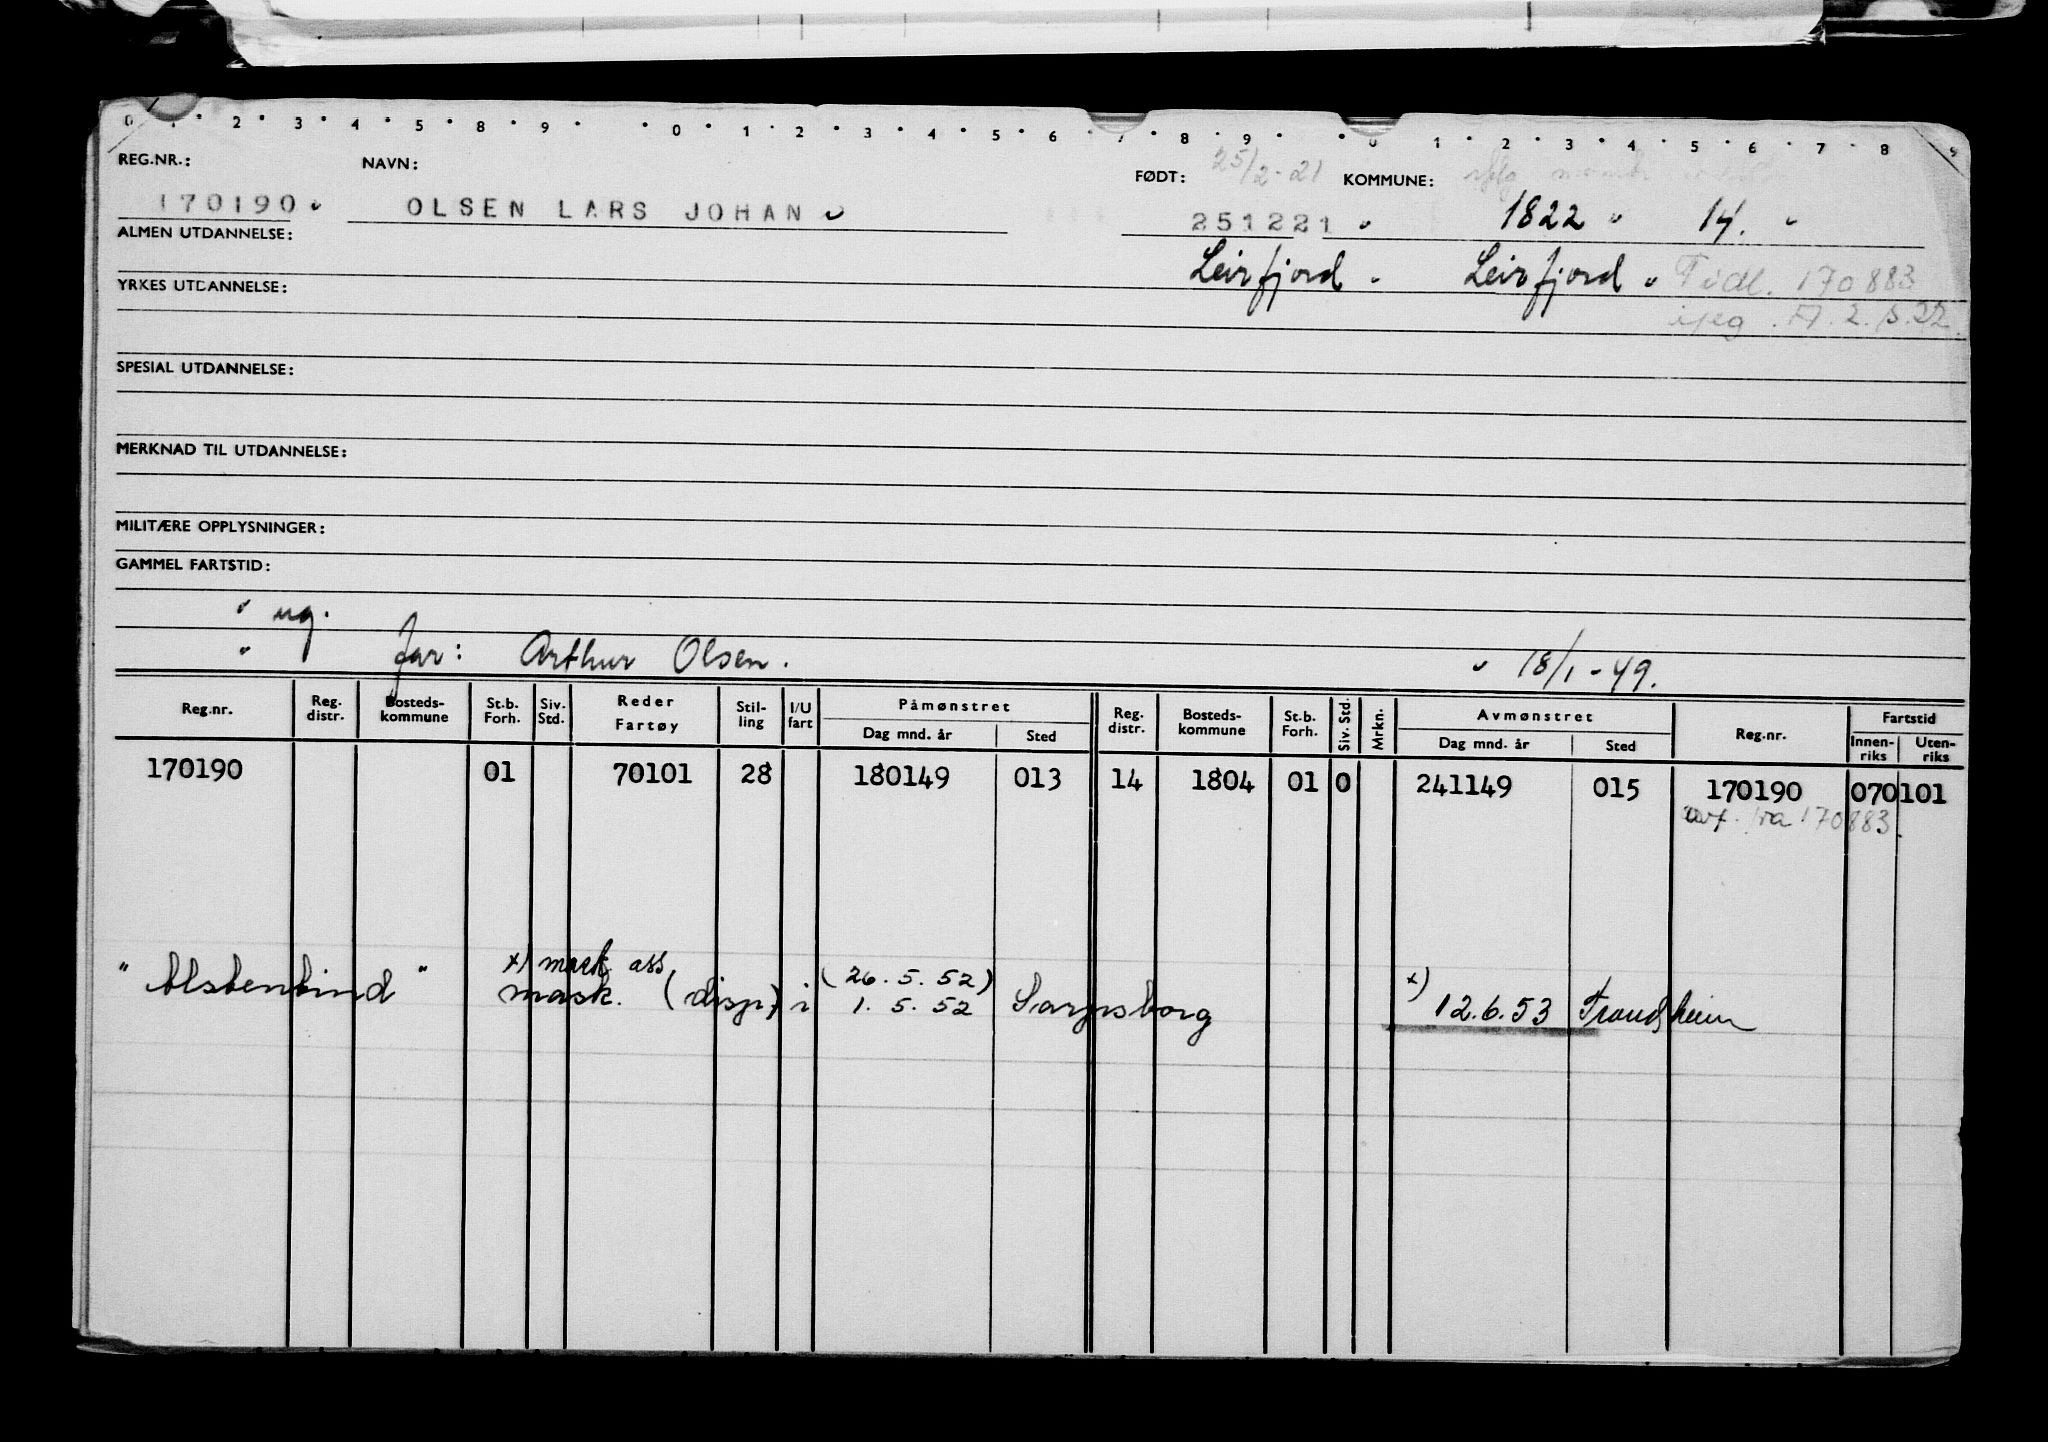 0 . 2 3 4 5 8 9 0 1 2 3 4 5 6 7 8 9 0 1 2 3 4 5 6 7 8 9
REG.NR.: NAVN: FØDT: 25/2-21 KOMMUNE:
170190 OLSEN LARS JOHAN 251221 1822 14.
ALMEN UTDANNELSE: Leirfjord Leirfjord Tidl. 170883
YRKES UTDANNELSE: A. 2. s. 22.
SPESIAL UTDANNELSE:
MERKNAD TIL UTDANNELSE:
MILITÆRE OPPLYSNINGER:
GAMMEL FARTSTID:
ug.
far: Arthur Olsen. 18/1-49.
Reg.nr. Reg. distr. Bosteds-kommune St.b. Forh. Siv. Std. Reder Fartøy Stil-ling I/U fart Påmønstret Dag mnd. år Sted Reg. distr. Bosteds-kommune St.b. Forh. Siv. Std. Mrkn. Avmønstret Dag mnd. år Sted Reg.nr. Fartstid Innen-riks Uten-riks
170190 01 70101 28 180149 013 14 1804 01 0 241149 015 170190 070101
ovf. fra 170883.
x) mask ass (26.5.52) x)
"Alstenlind" mask. (disp) i 1.5.52 Sarpsborg 12.6.53 Trondheim